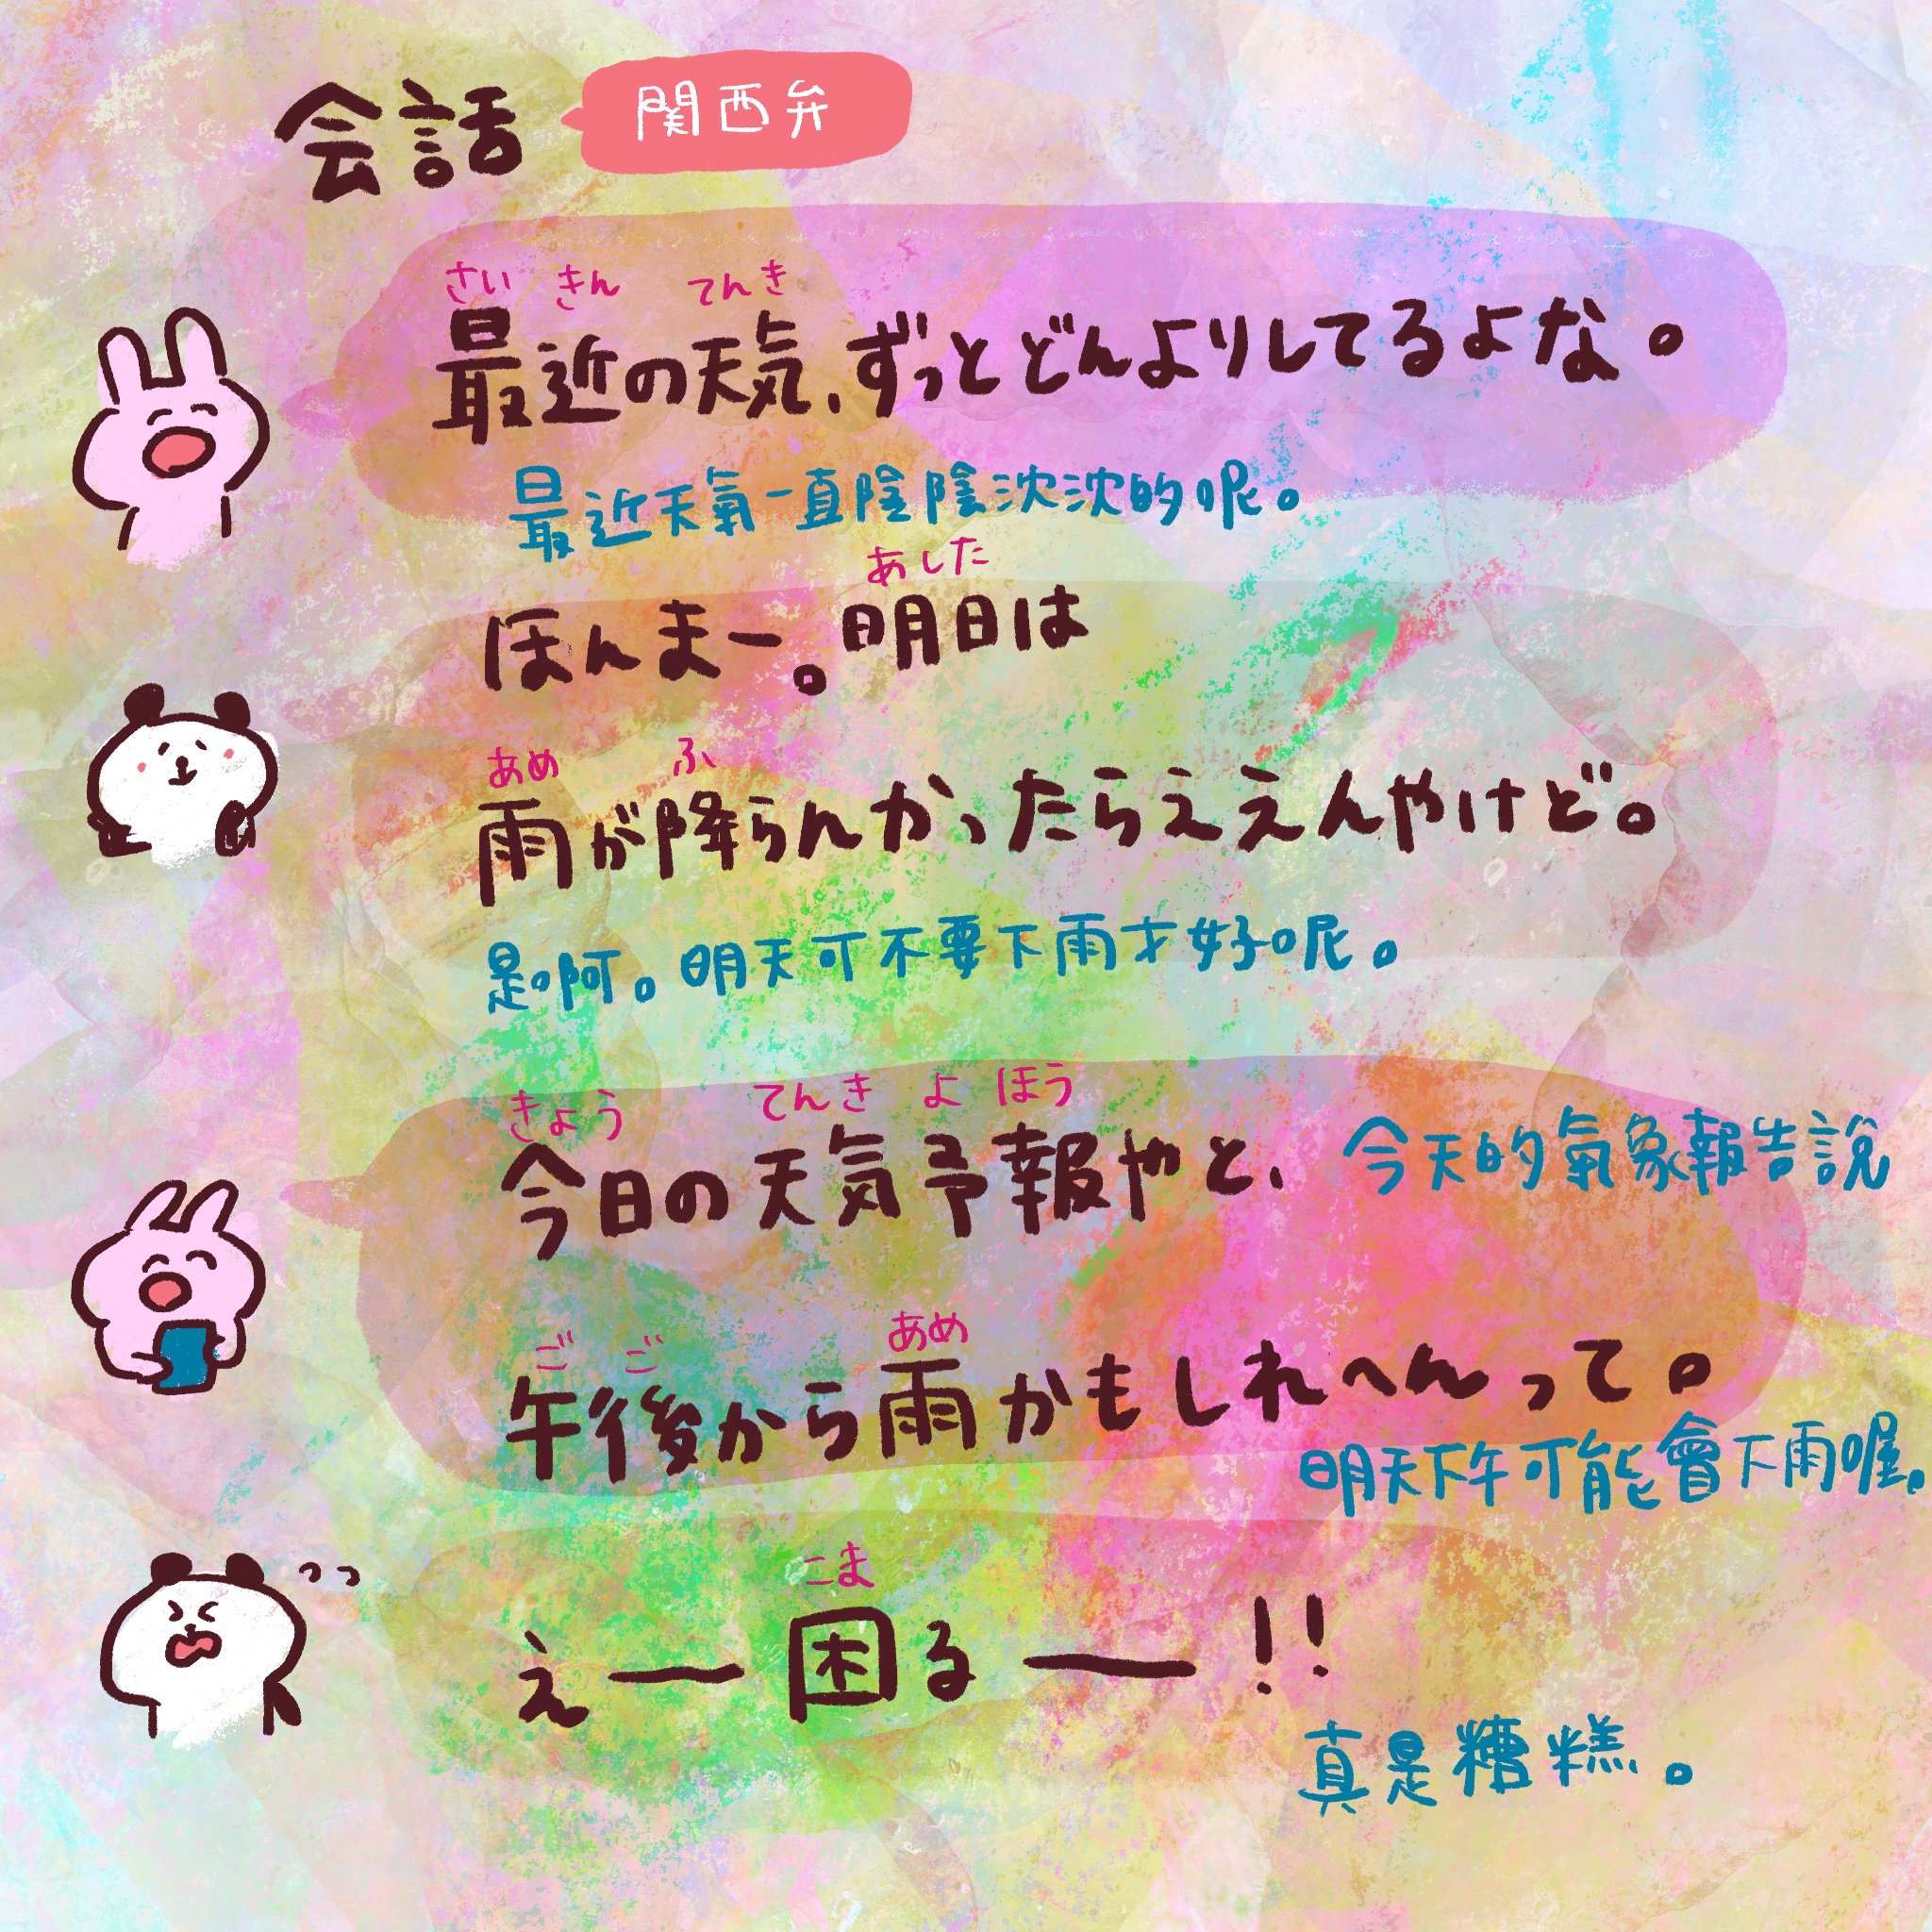 会話 関西弁
さい きん てんき
最近の天気、ずっとどんよりしてるよな。
最近天氣一直陰陰沈沈的呢。
あした
ほんまー。明日は
あめ ふ
雨が降らんかったらええんやけど。
是啊。明天可不要下雨才好呢。
きょう てんき よ ほう
今日の天気予報やと、 今天的氣象報告説
ご ご あめ
午後から雨かもしれへんって。
明天下午可能會下雨喔。
こま
え── 困る──!!
真是糟糕。